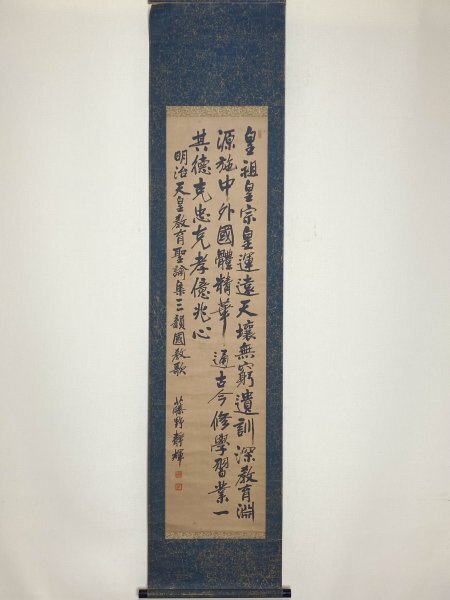 皇祖皇宗皇運遠天壤無窮遺訓深教育淵
源施中外國體精華通古今修學習業一
其德克忠克孝億兆心
明治天皇敎育聖諭集三韻國敎歌
藤野靜輝